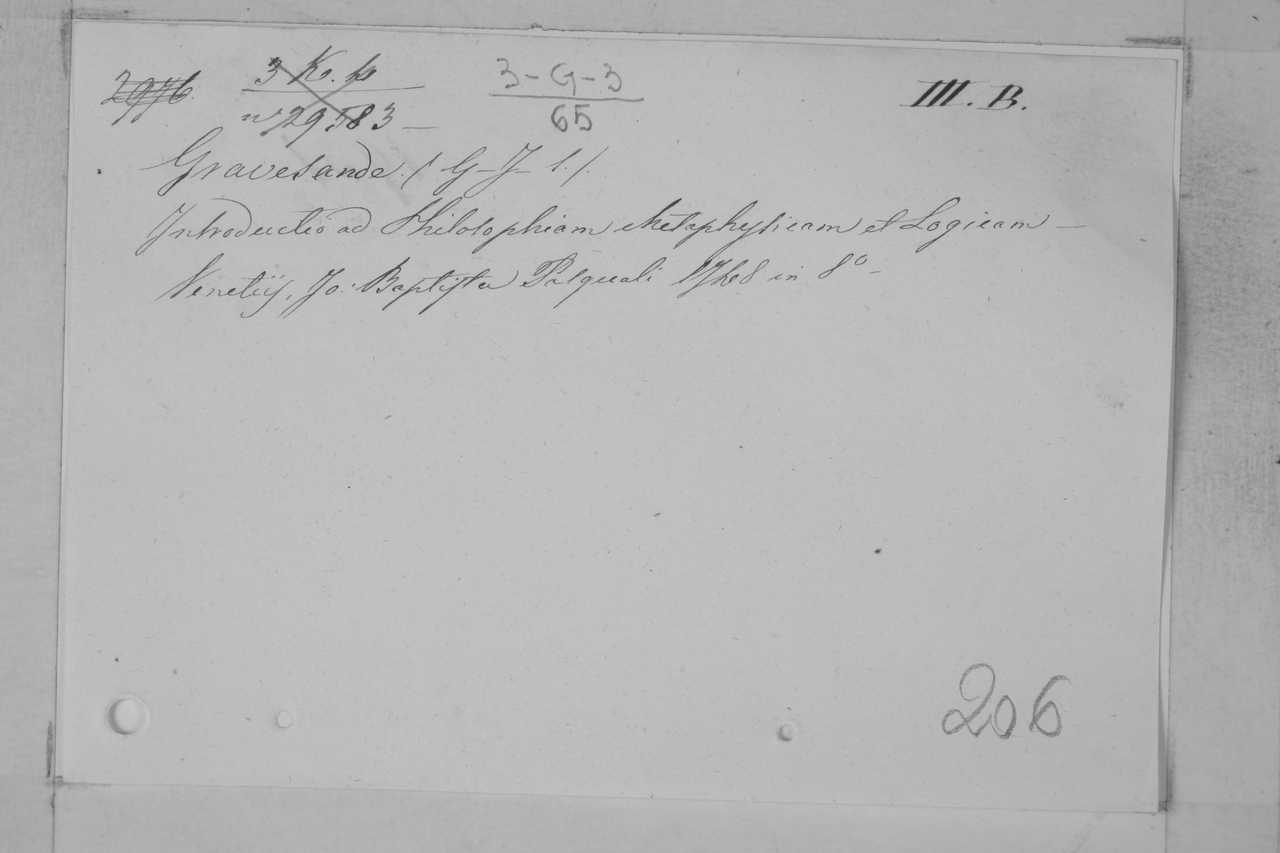 3 Ko. p 3-G-3 III. B.
nº 29583 — 65
Gravesande. (G-J- s.).
Introductio ad Philosophiam Metaphysicam et Logicam —
Venetiis, Jo: Baptista Pasquali 1748 in 8º -
206